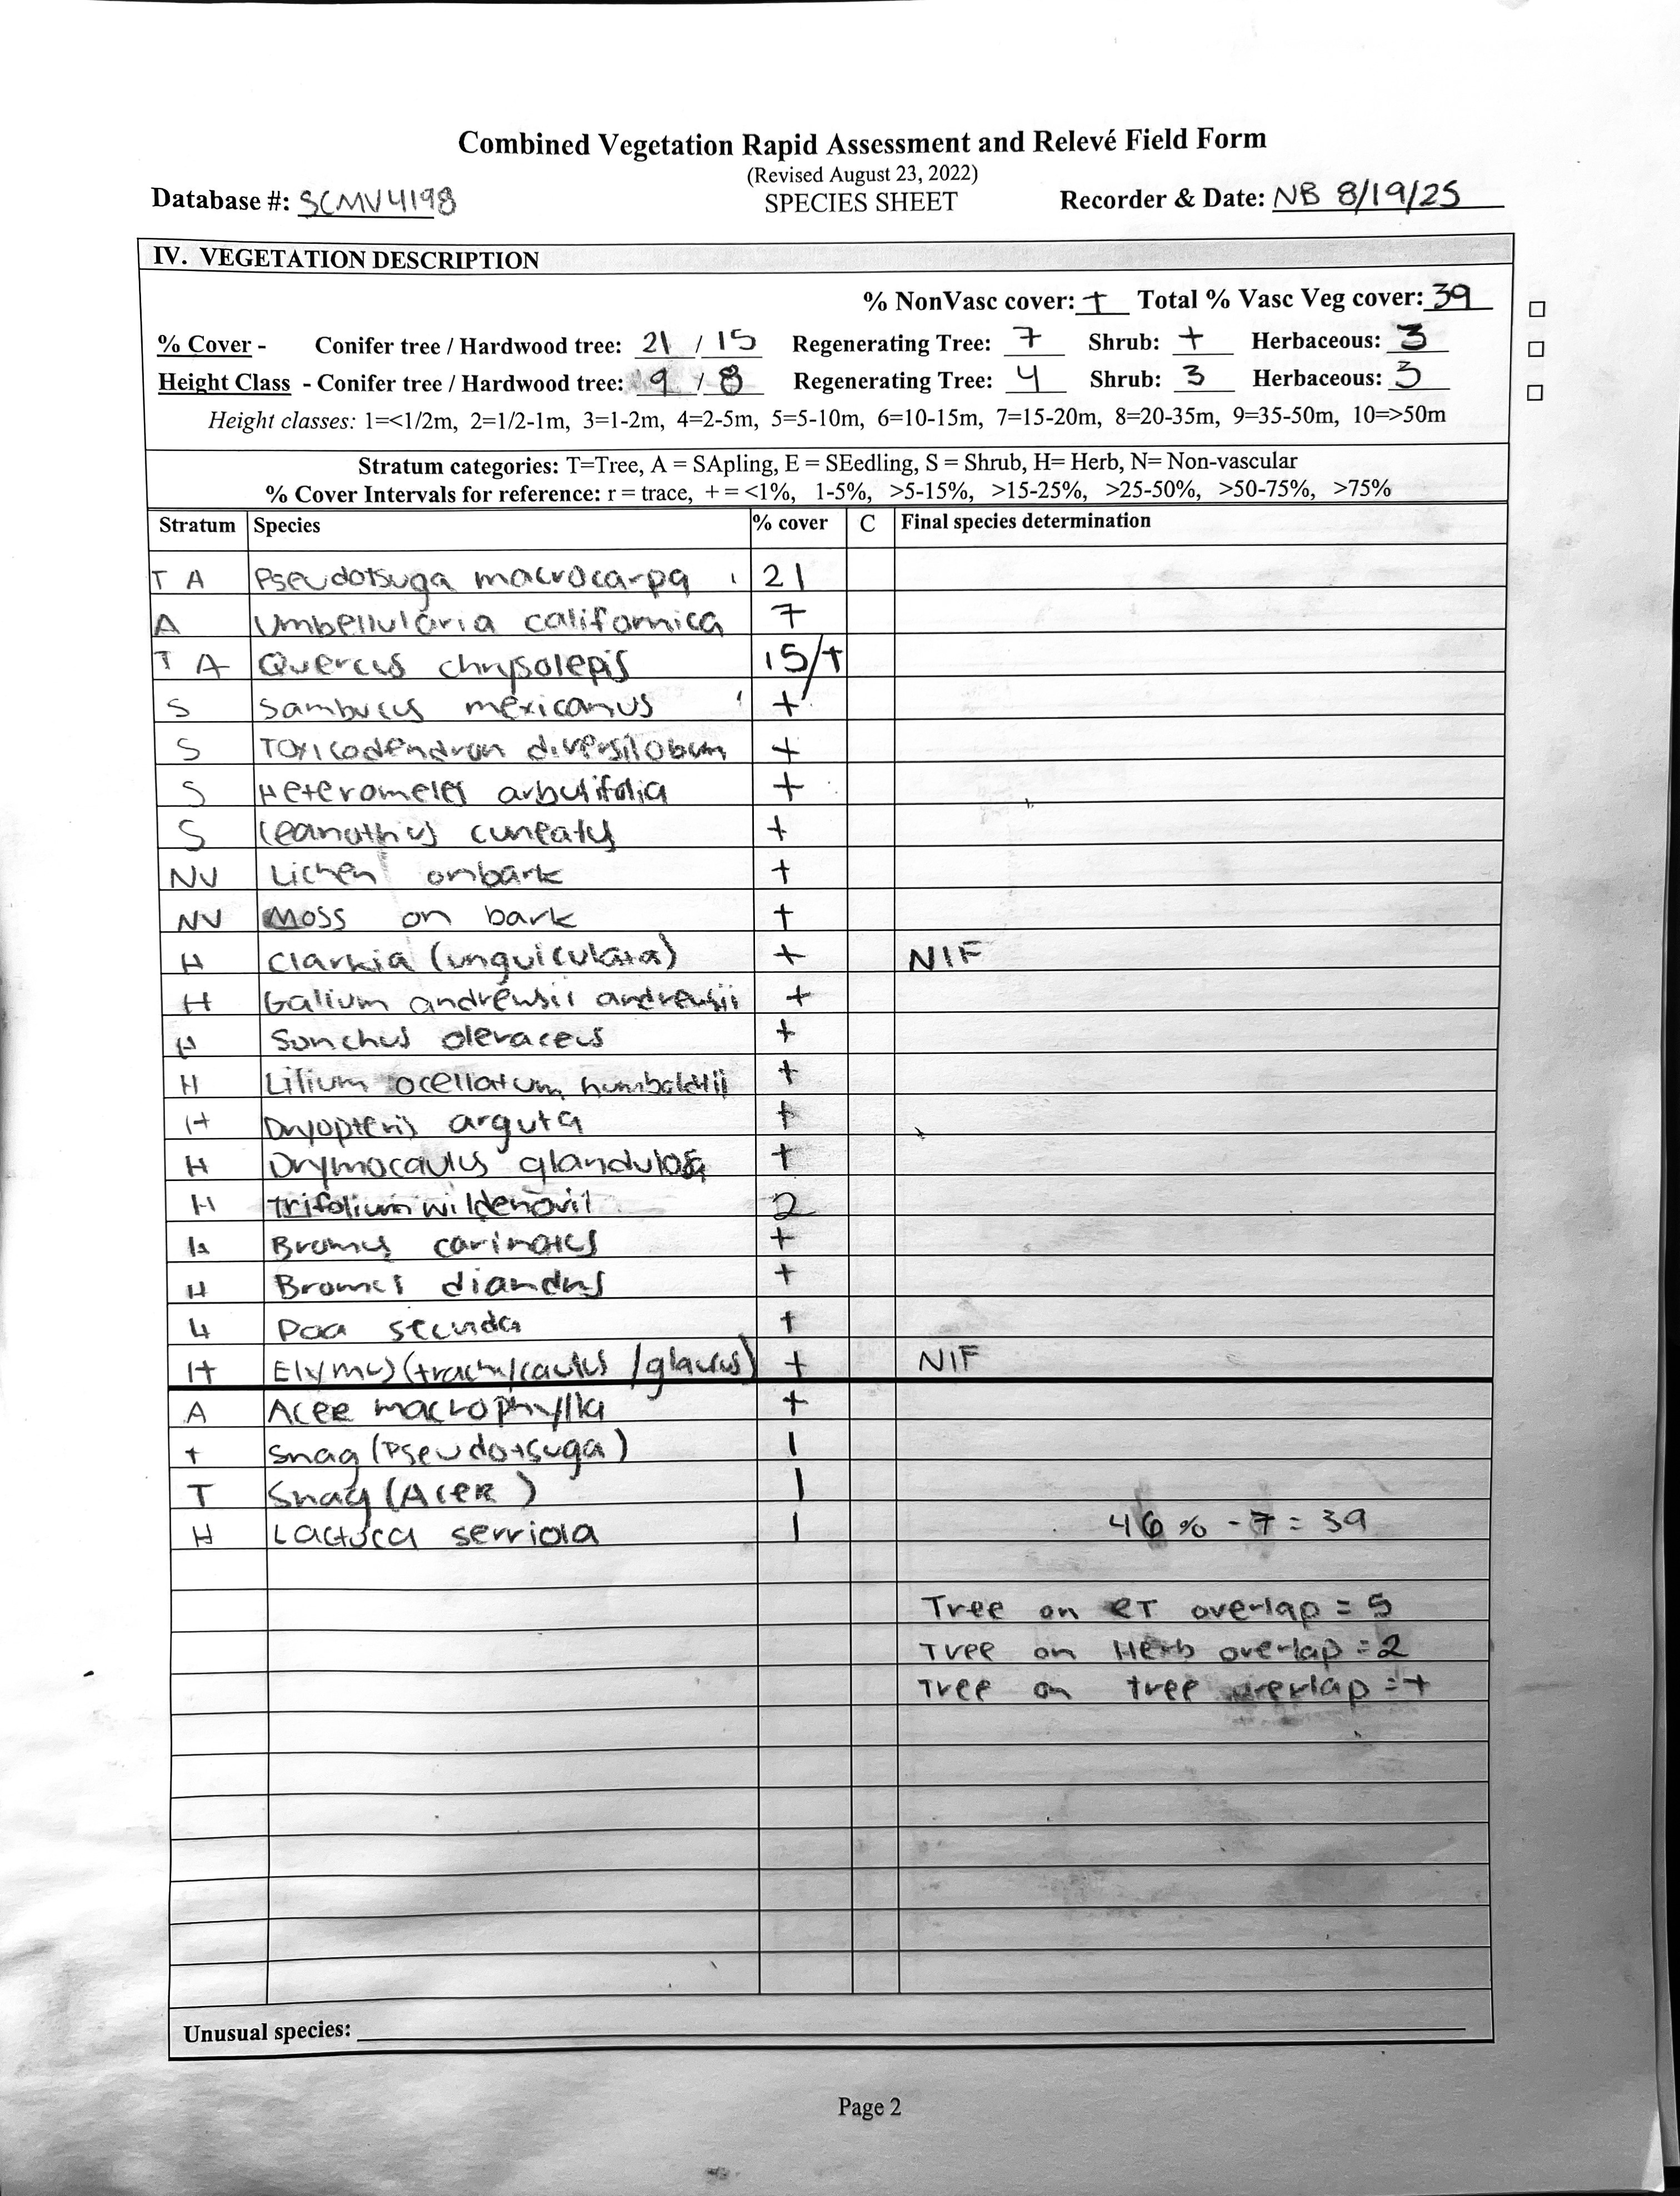 Combined Vegetation Rapid Assessment and Relevé Field Form
(Revised August 23, 2022)
Database #: SCMV4198 SPECIES SHEET Recorder & Date: NB 8/19/25
IV. VEGETATION DESCRIPTION
% NonVasc cover: + Total % Vasc Veg cover: 39
% Cover - Conifer tree / Hardwood tree: 21 / 15 Regenerating Tree: 7 Shrub: + Herbaceous: 3
Height Class - Conifer tree / Hardwood tree: 9 / 8 Regenerating Tree: 4 Shrub: 3 Herbaceous: 3
Height classes: 1=<1/2m, 2=1/2-1m, 3=1-2m, 4=2-5m, 5=5-10m, 6=10-15m, 7=15-20m, 8=20-35m, 9=35-50m, 10=>50m
Stratum categories: T=Tree, A = SApling, E = SEedling, S = Shrub, H= Herb, N= Non-vascular
% Cover Intervals for reference: r = trace, + = <1%, 1-5%, >5-15%, >15-25%, >25-50%, >50-75%, >75%
Stratum Species % cover C Final species determination
T A Pseudotsuga macrocarpa 21
A Umbellularia californica 7
T A Quercus chrysolepis 15/+
S Sambucus mexicanus +
S Toxicodendron diversilobum +
S Heteromeles arbutifolia +
S Ceanothus cuneatus +
NV Lichen on bark +
NV Moss on bark +
H Clarkia (unguiculata) + NIF
H Galium andrewsii andrewsii +
H Sonchus oleraceus +
H Lilium ocellatum humboldtii +
H Dryopteris arguta +
H Drymocaulis glandulosa +
H Trifolium wildenovii 2
H Bromus carinatus +
H Bromus diandrus +
H Poa secunda +
H Elymus (trachycaulus / glaucus) + NIF
A Acer macrophylla +
T Snag (Pseudotsuga) 1
T Snag (Acer) 1
H Lactuca serriola 1 46 % - 7 = 39
Tree on RT overlap = 5
Tree on Herb overlap = 2
Tree on tree overlap = +
Unusual species:
Page 2